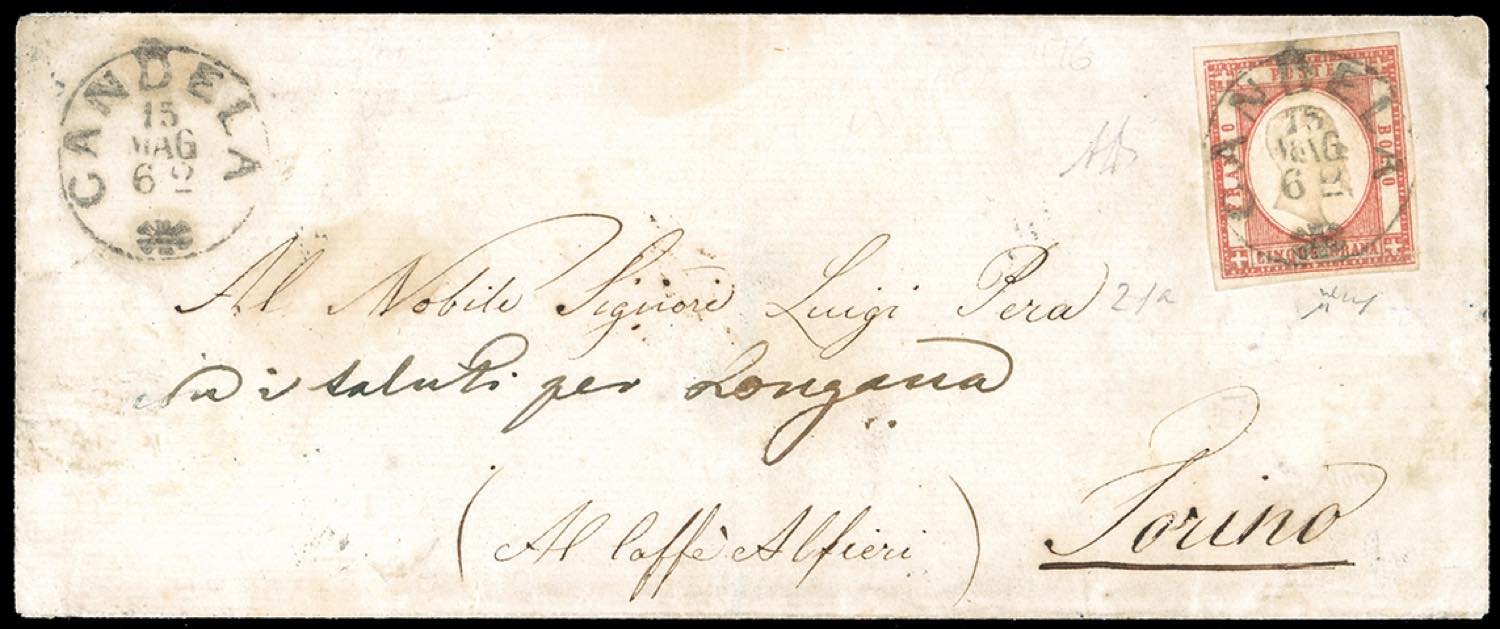 CANDELA
15
MAG
62
POSTE
FRANCO
BOLLO
CINQUE GRANA
CANDELA
15
MAG
62
Al Nobile Signore Luigi Pera
21a
i saluti per Longana
(Al Caffè Alfieri)
Torino